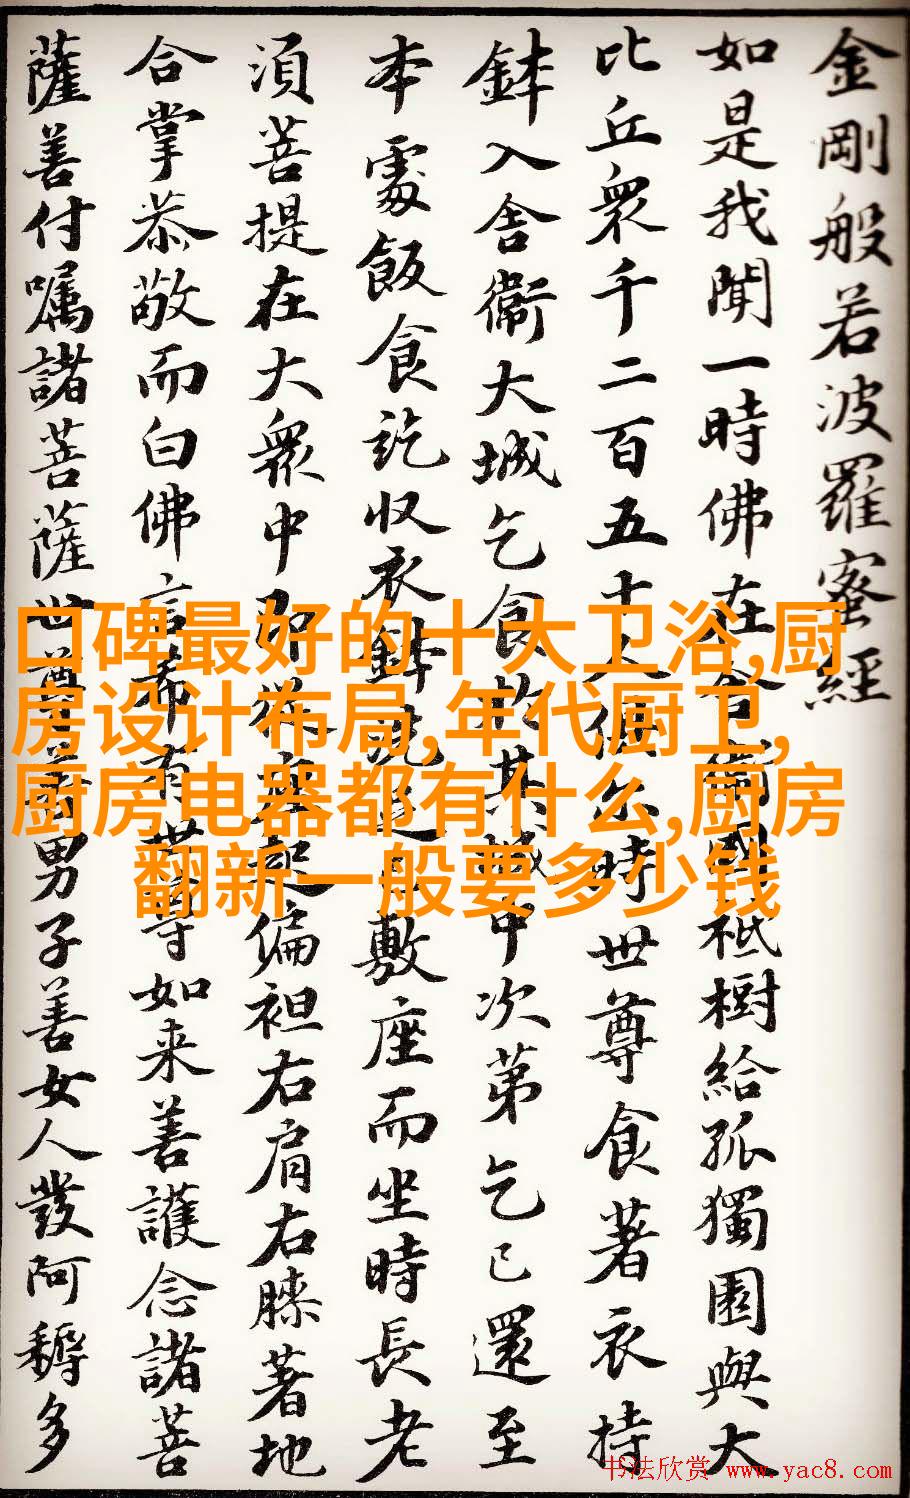 金剛般若波羅蜜經
如是我聞一時佛在舍衛國祇樹給孤獨園與大
比丘衆千二百五十人俱尒時世尊食著衣持
鉢入舍衛大城乞食於其城中次第乞已還至
本處飯食訖収衣鉢洗足已敷座而坐時長老
湏菩提在大衆中即從座起偏袒右肩右膝著地
合掌恭敬而白佛言希有世尊如来善護念諸菩
薩善付嘱諸菩薩世尊善男子善女人發阿耨多
口碑最好的十大卫浴,厨
房设计布局,年代厨卫,
厨房电器都有什么,厨房
翻新一般要多少钱
书法欣赏 www.yac8.com